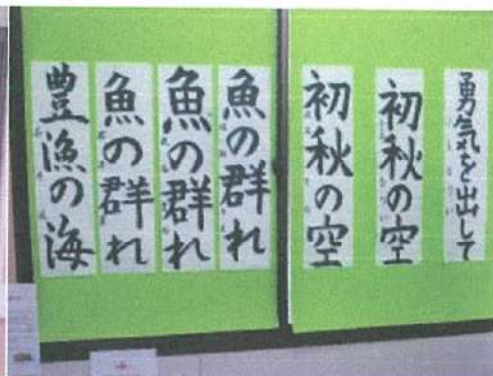 勇気を出して
初秋の空
初秋の空
魚の群れ
魚の群れ
魚の群れ
豊漁の海